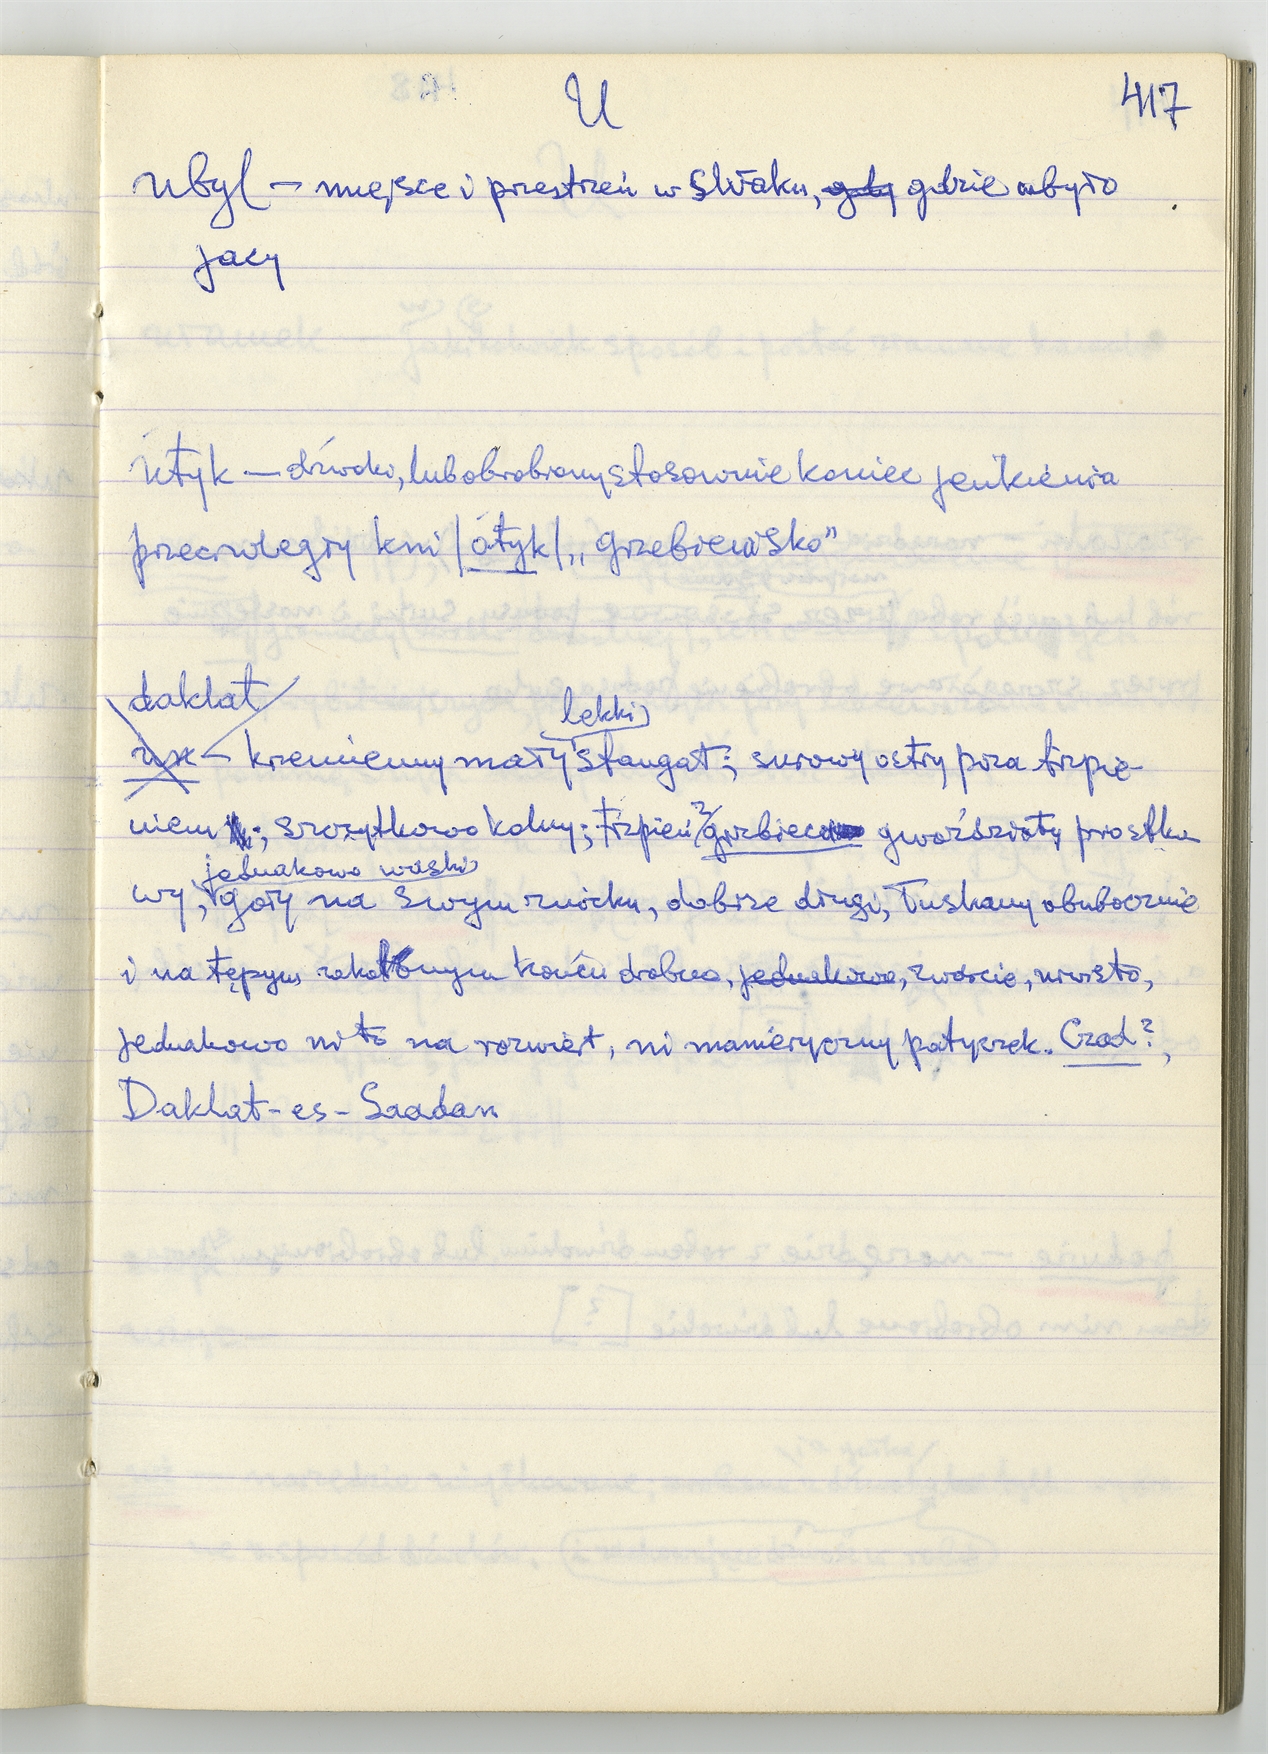 U 417
ubyl — miejsce i przestrzeń w stłaku, gdy gdzie ubyło
jacy
útyk — dziwoko, lub obrobiony stosownie koniec
przeciwległy kmi /otyk/ „grzebiewisko”
daklat
lekki
ux – krzemienny mały staugat; surowy ostry poza trzpie-
niem; szczytkowo kolny; trzpień ? grzbiec gwoździoty prostko
jednakowo wąski
wy, goły na swym zwicku, dobrze długi, łuskany obubocznie
i na tępym końcu drobno, jednakowo, zwarcie,
jednakowo ni to na rozwiert, ni manieryczny patyczek. Czad?,
Daklat-es-Saadan